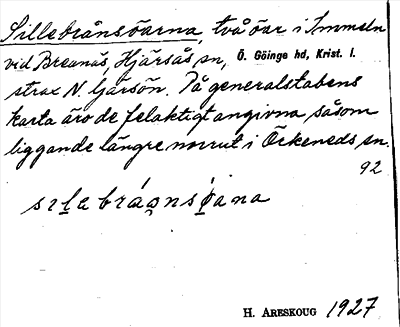 Sillebrånsöarna, två öar i Immeln
vid Breanäs, Hjärsås sn, Ö. Göinge hd, Krist. l.
strax N. Gårsön. På generalstabens
karta äro de felaktigt angivna, såsom
liggande längre norrut i Örkeneds sn.
92
H. ARESKOUG 1927